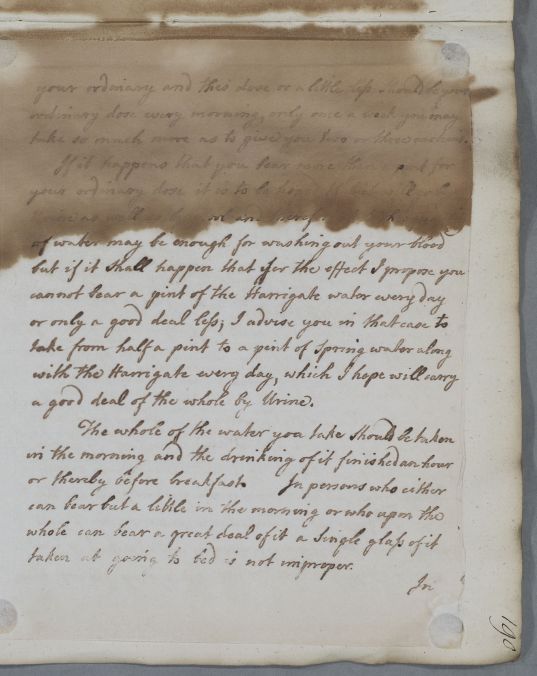 your ordinary and this dose or a little less should be your
ordinary dose every morning, only once a week you may
take so much more as to give you two or three
If it happens that you bear more than a pint for
your ordinary dose it is to be
Urine as well as by
of water may be enough for washing out your blood
but if it shall happen that for the effect I propose you
cannot bear a pint of the Harrigate water every day
or only a good deal less; I advise you in that case to
take from half a pint to a pint of Spring water along
with the Harrigate every day, which I hope will carry
a good deal of the whole by Urine.
The whole of the water you take should be taken
in the morning and the drinking of it finished an hour
or thereby before breakfast. In persons who either
can bear but a little in the morning or who upon the
whole can bear a great deal of it a single glass of it
taken at going to bed is not improper.
In
190